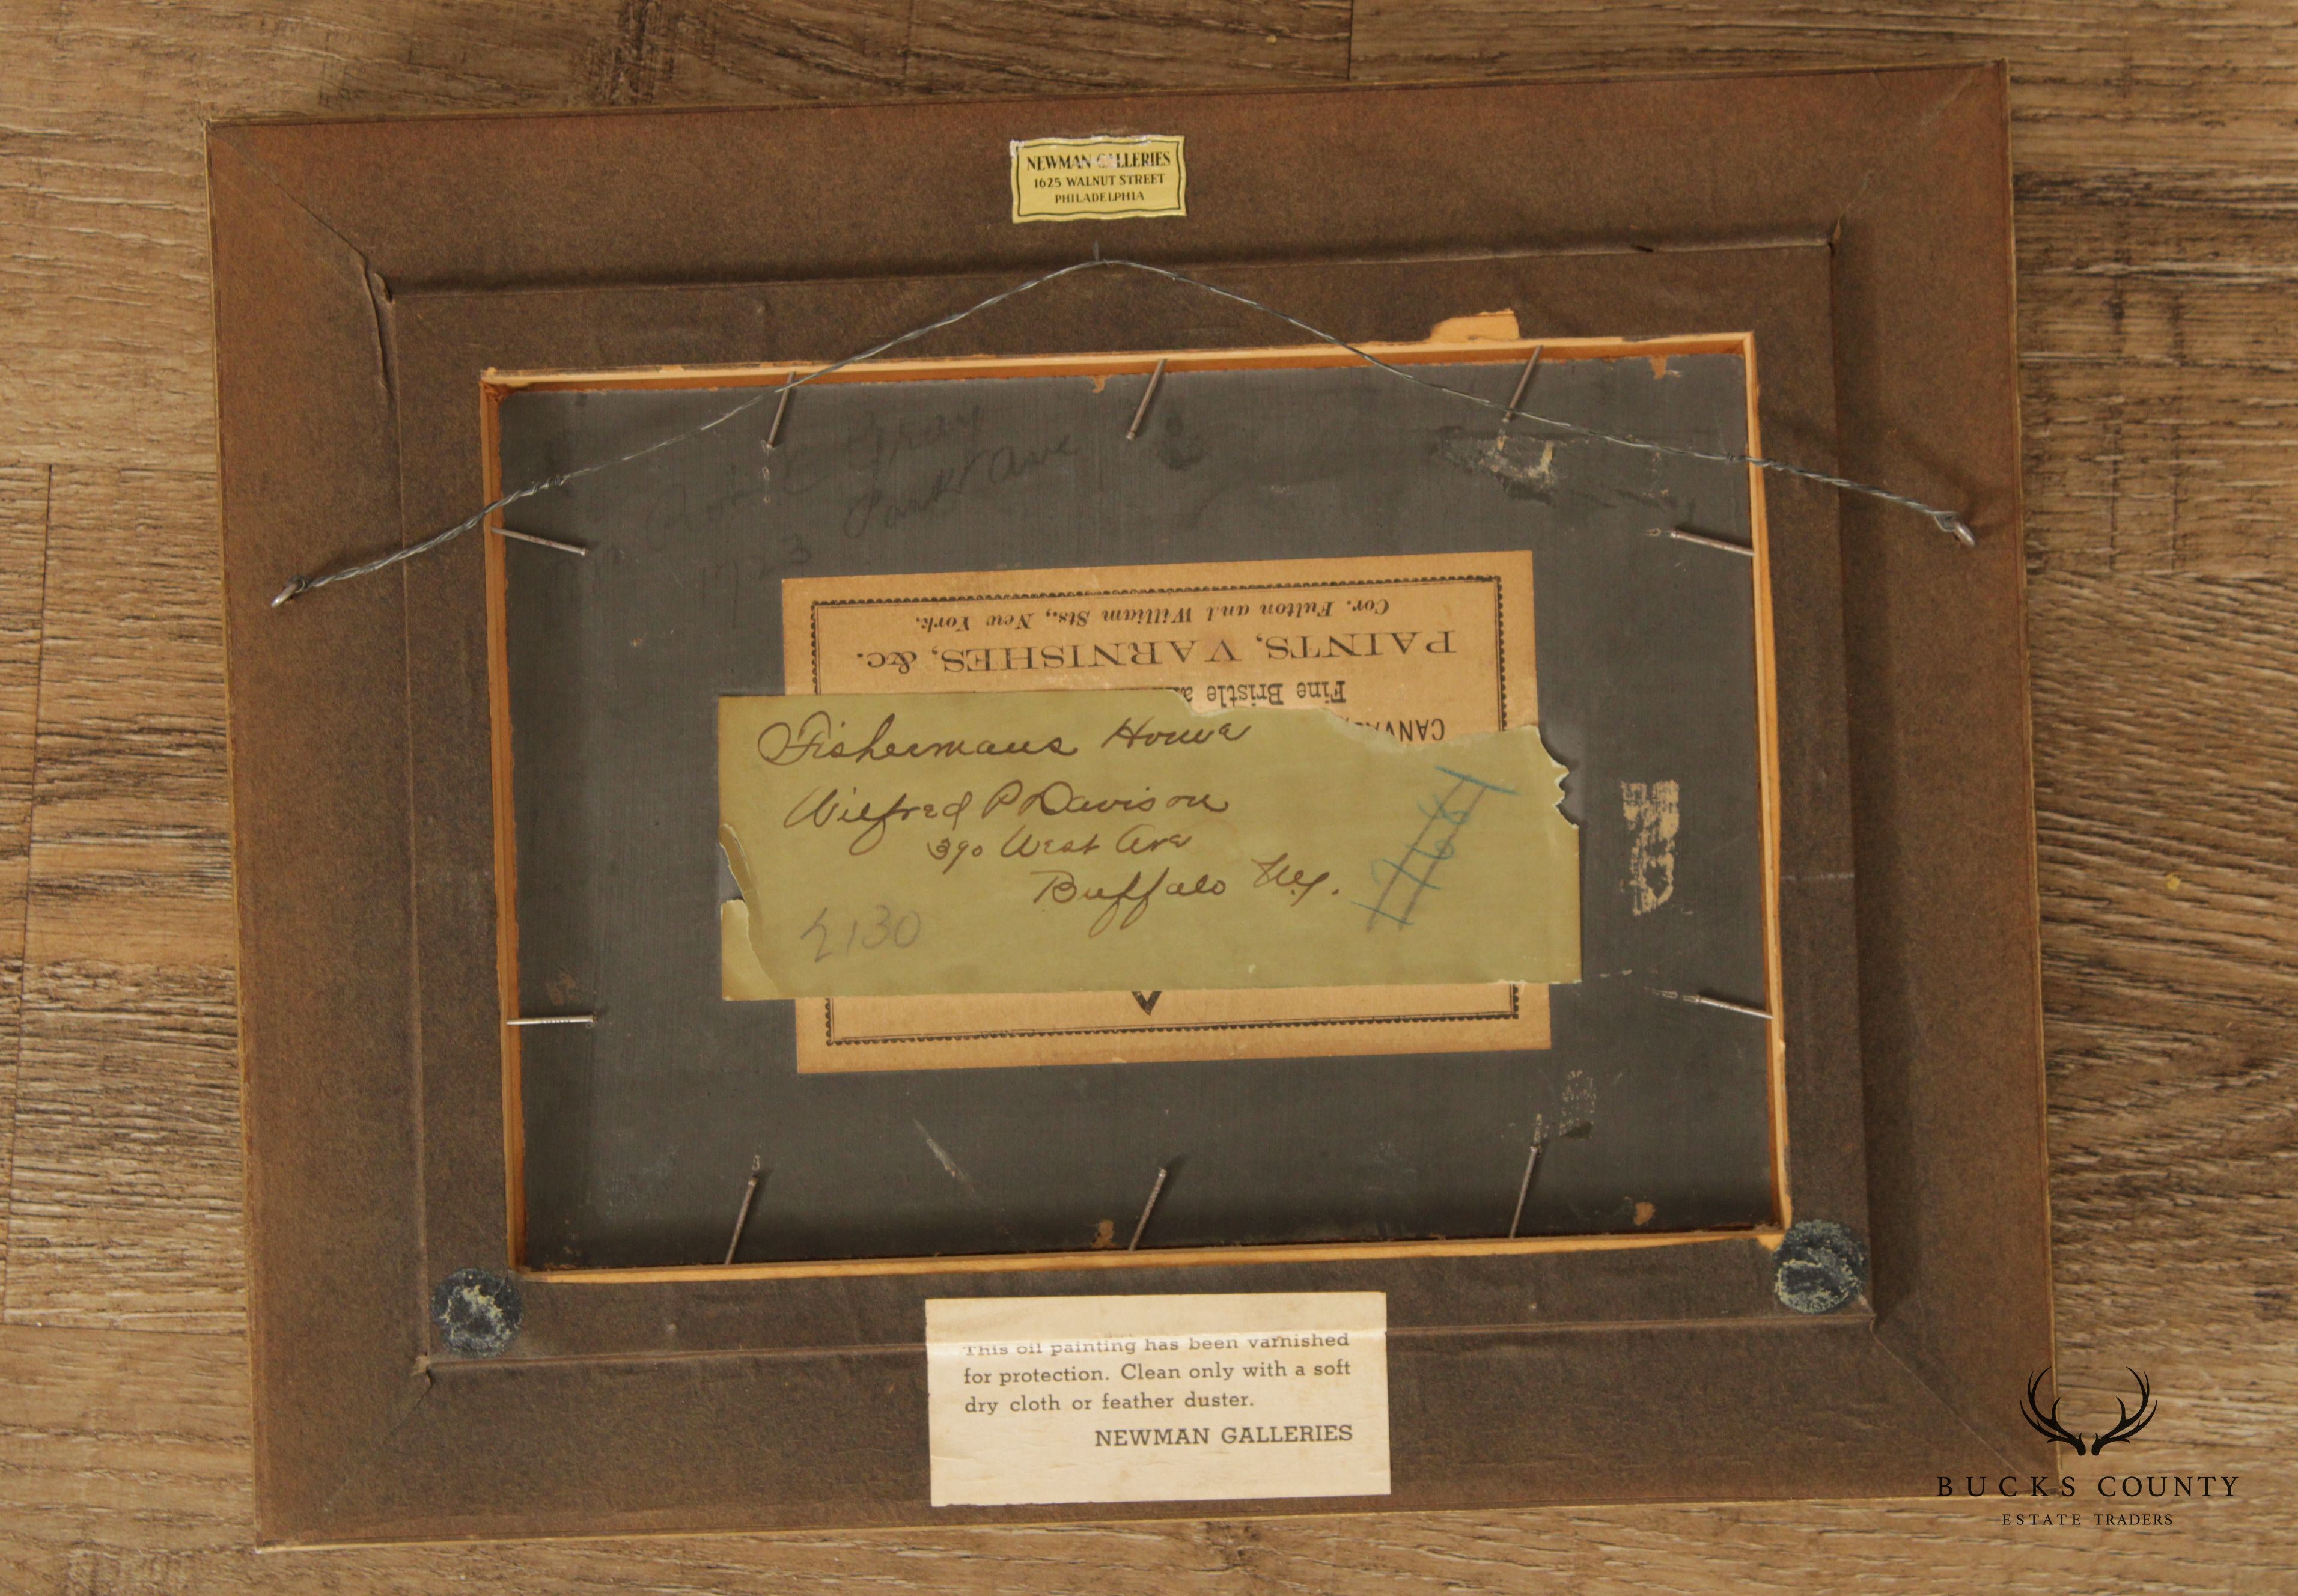 NEWMAN GALLERIES
1625 WALNUT STREET
PHILADELPHIA
Gray
1723 Park Ave
Cor. Fulton and William Sts., New York.
PAINTS, VARNISHES, &c.
Fine Bristle
Fishermans Home
Wilfred P Davison
390 West Ave
Buffalo N.Y.
2130
This oil painting has been varnished
for protection. Clean only with a soft
dry cloth or feather duster.
NEWMAN GALLERIES
BUCKS COUNTY
ESTATE TRADERS